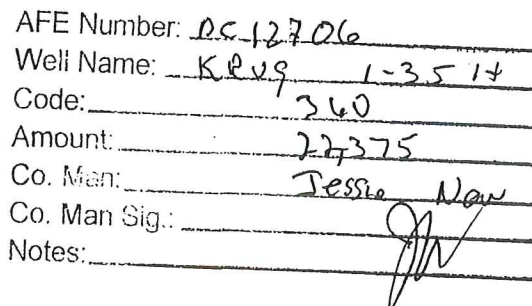 AFE Number: DC12706
Well Name: Krug 1-35 H
Code: 340
Amount: 22,375
Co. Man: Jessie
Co. Man Sig.:
Notes: